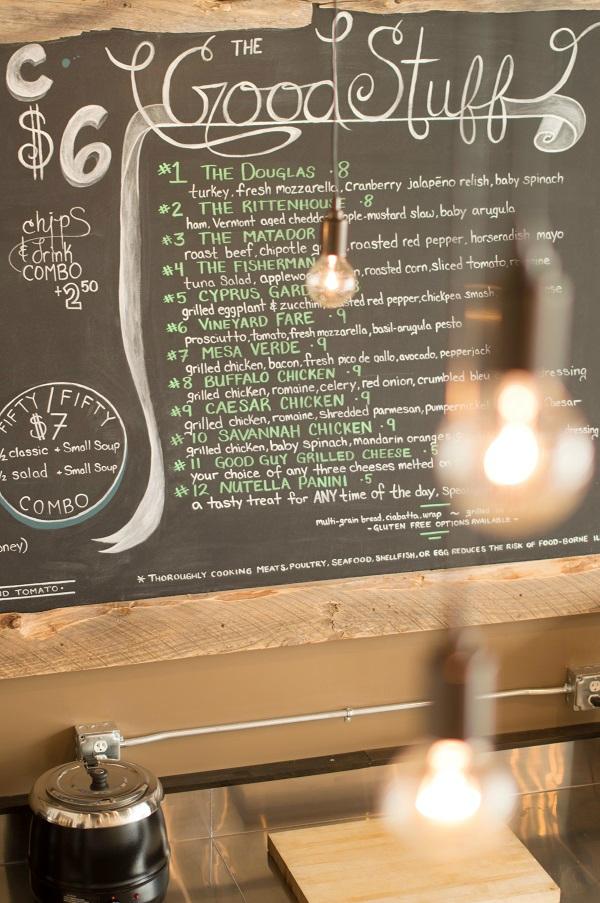 THE
Good Stuff
C.
$6
chips
& drink
COMBO
+2 50
FIFTY/FIFTY
$7
½ classic + Small Soup
½ salad + Small Soup
COMBO
#1 THE DOUGLAS · 8
turkey, fresh mozzarella, cranberry jalapeño relish, baby spinach
#2 THE RITTENHOUSE · 8
ham, Vermont aged cheddar, apple-mustard slaw, baby arugula
#3 THE MATADOR
roast beef, chipotle roasted red pepper, horseradish mayo
#4 THE FISHERMAN
tuna salad, roasted corn, sliced tomato,
#5 CYPRUS
grilled eggplant & zucchini, red pepper, chickpea smash
#6 VINEYARD FARE · 9
prosciutto, tomato, fresh mozzarella, basil-arugula pesto
#7 MESA VERDE · 9
grilled chicken, bacon, fresh pico de gallo, avocado, pepperjack
#8 BUFFALO CHICKEN · 9
grilled chicken, romaine, celery, red onion, crumbled bleu dressing
#9 CAESAR CHICKEN · 9
grilled chicken, romaine, shredded parmesan,
#10 SAVANNAH CHICKEN · 9
grilled chicken, baby spinach, mandarin dressing
#11 GOOD GUY GRILLED CHEESE · 5
your choice of any three cheeses melted
#12 NUTELLA PANINI · 5
a tasty treat for ANY time of the day,
multi-grain bread, ciabatta, wrap ~ grilled
~ GLUTEN FREE OPTIONS AVAILABLE ~
* THOROUGHLY COOKING MEATS, POULTRY, SEAFOOD, SHELLFISH, OR EGG REDUCES THE RISK OF FOOD-BORNE
TOMATO ·